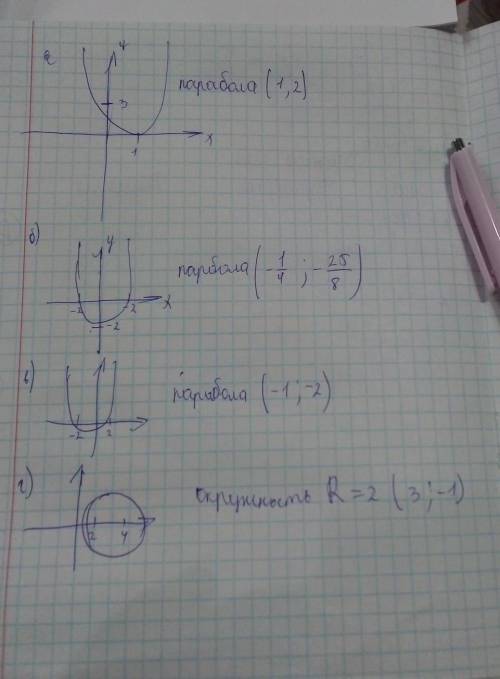 а) y
3
парабола (1,2)
1
x
б) y
парбола (-1/4 ; -25/8)
-2 -2 x
-2
в)
парабола (-1 ; -2)
-2 2
г)
окружность R = 2 (3 ; -1)
2 4